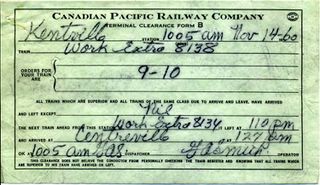 CANADIAN PACIFIC RAILWAY COMPANY
TERMINAL CLEARANCE FORM B
Kentville STATION 1005 am Nov 14-60
TRAIN Work Extra 8138
ORDERS FOR YOUR TRAIN ARE 9-10
ALL TRAINS WHICH ARE SUPERIOR AND ALL TRAINS OF THE SAME CLASS DUE TO ARRIVE AND LEAVE, HAVE ARRIVED
AND LEFT EXCEPT Nil
THE NEXT TRAIN AHEAD FROM THIS STATION Work Extra 8134 IT LEFT AT 110 pm
AND Centreville AT 127 am
OK 1005 am DISPATCHER OPERATOR
THIS CLEARANCE DOES NOT RELIEVE THE CONDUCTOR FROM PERSONALLY CHECKING THE TRAIN REGISTER AND KNOWING THAT ALL TRAINS